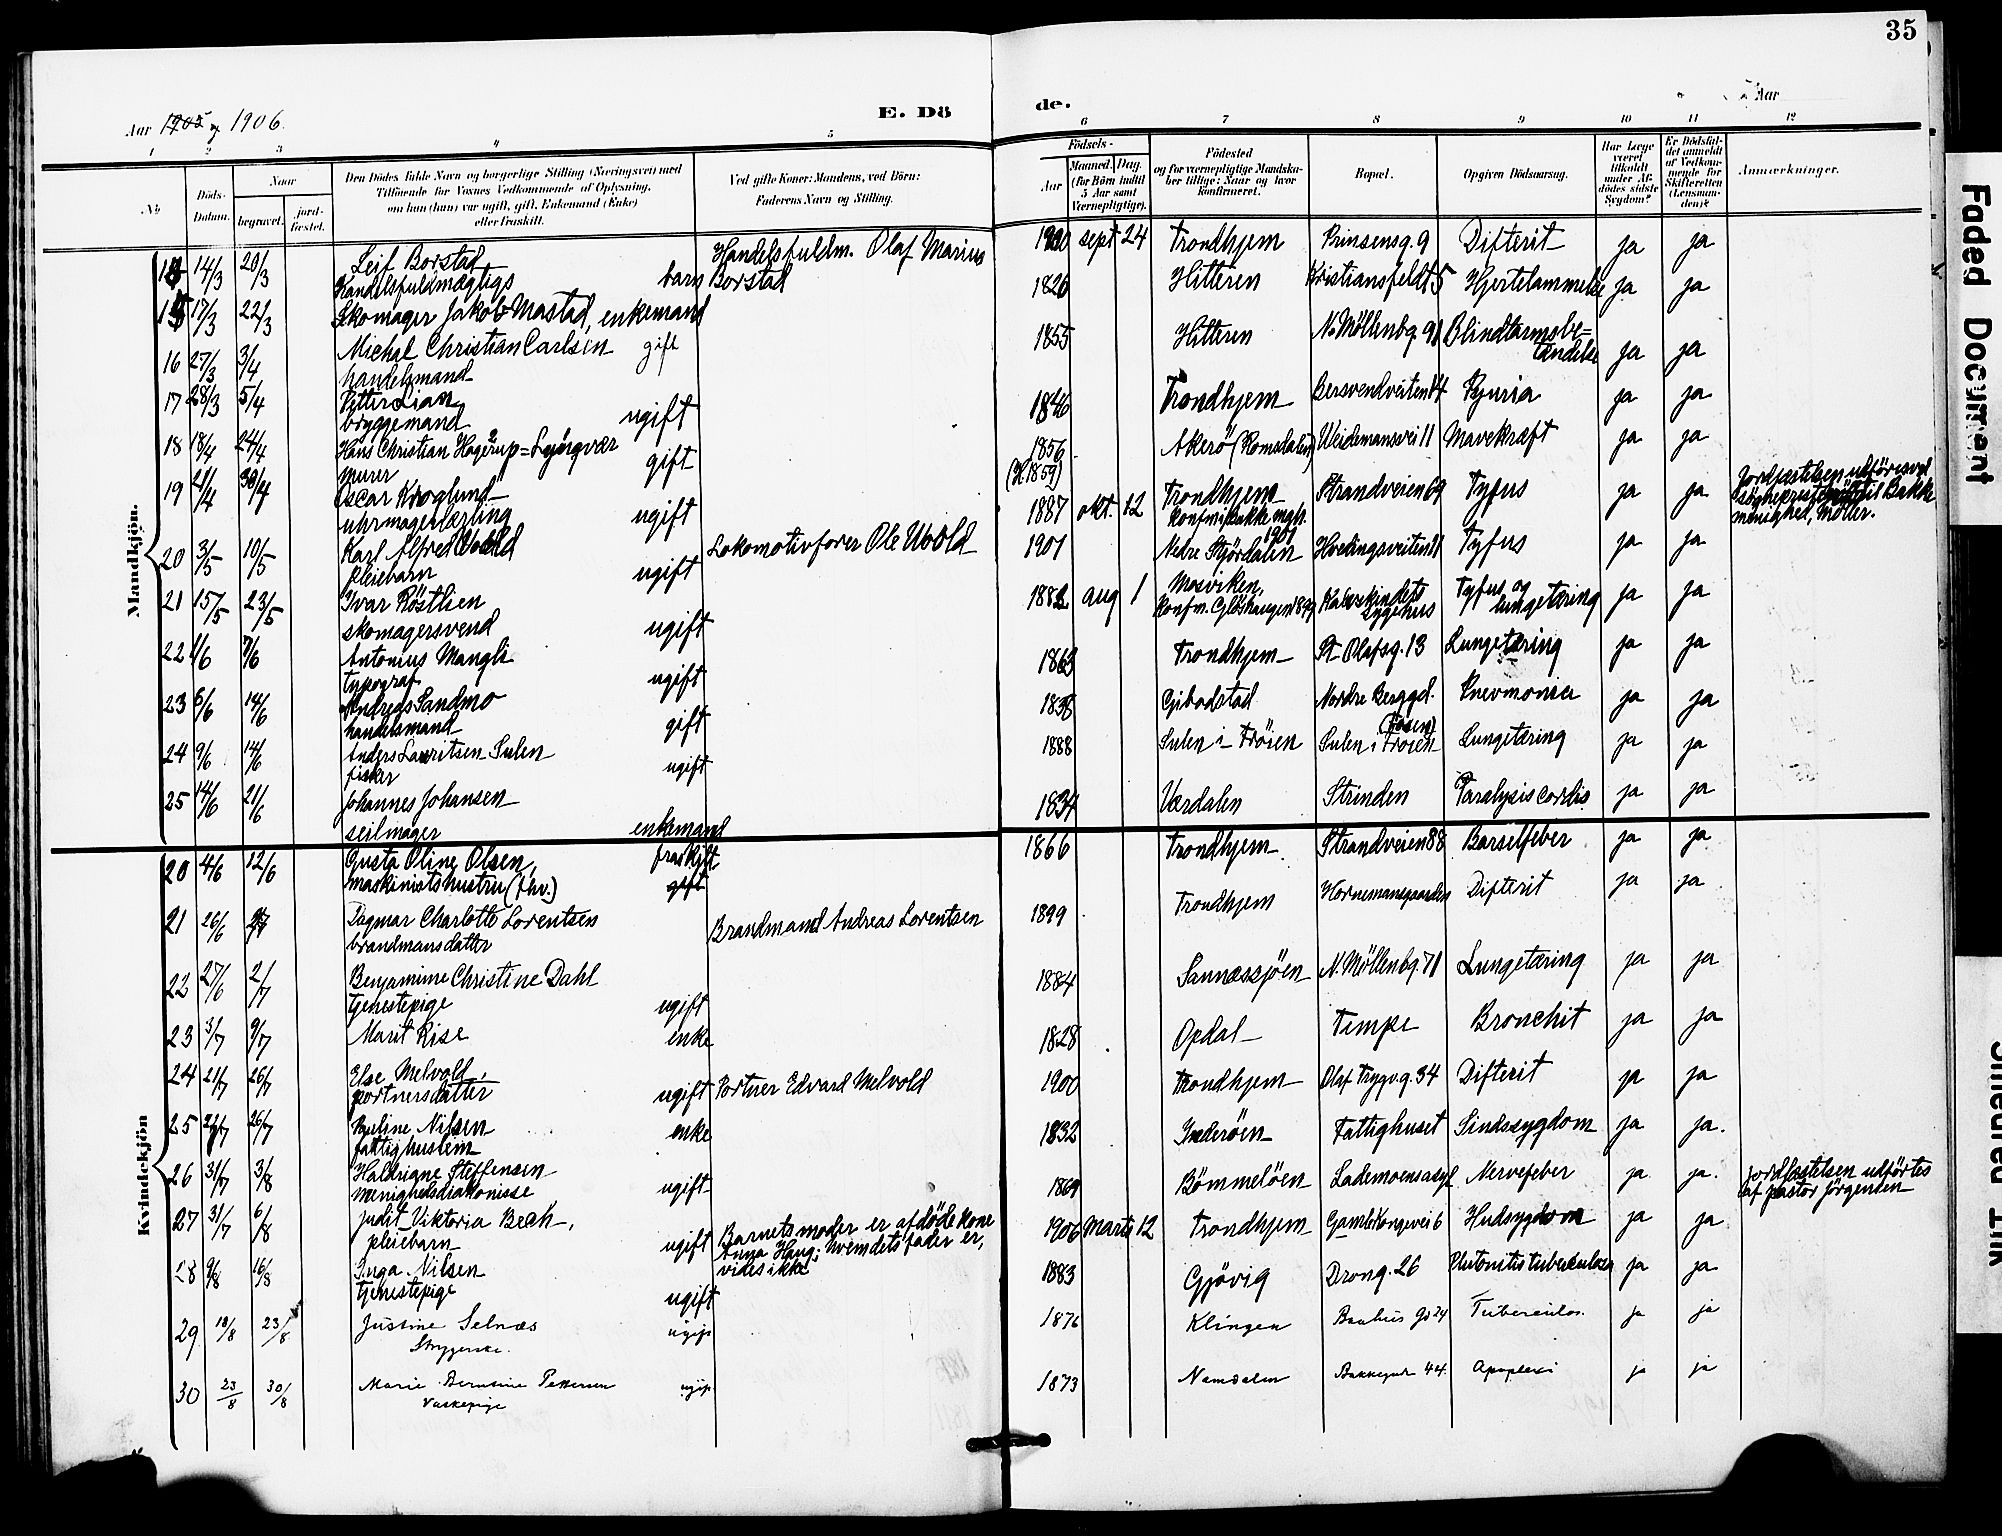 35
Aar 1905 og 1906.
E. Dö
de.
Aar
1 2 3 4 5 6 7 8 9 10 11 12
No
Döds-Datum.
Naar
begravet.
jord-fæstet.
Den Dödes fulde Navn og borgerlige Stilling (Næringsvei) med
Tilföiende for Voxnes Vedkommende af Oplysning,
om han (hun) var ugift, gift, Enkemand (Enke)
eller fraskilt.
Ved gifte Koner: Mandens, ved Börn:
Faderens Navn og Stilling.
Födsels-
Aar
Maaned. Dag.
(for Börn indtil
5 Aar samt
Værnepligtige).
Födested
og for værnepligtige Mandska-
ber tillige: Naar og hvor
konfirmeret.
Bopæl.
Opgiven Dödsaarsag.
Har Læge
været
tilkaldt
under Af-
dödes sidste
Sygdom?
Er Dödsfal-
det anmeldt
af Vedkom-
mende for
Skifteretten
(Lensman-
den)?
Anmærkninger.
Mandkjön.
14 14/3 20/3 Leif Borstad Handelsfuldm. Olaf Marius 1900 sept 24 Trondhjem Prinsensg. 9 Difterit ja ja
Handelsfuldmægtigs barn Borstad
15 17/3 22/3 Skomager Jakob Mastad, enkemand 1826 Hitteren Kristiansfeldt 5 Hjertelammelse ja ja
16 27/3 3/4 Michal Christian Carlsen gift 1855 Hitteren N. Möllenbg. 91 Blindtarmsbe=
tændelse ja ja
handelsmand
17 28/3 5/4 Petter Lian 1846 Trondhjem Bersvendveiten 14 Pyuria ja ja
bryggemand ugift
18 18/4 24/4 Hans Christian Hagerup=Lyörgvær 1856 Akerö (Romsdalen) Weidemansvei 11 Mavekræft ja ja
murer gift (K. 1859)
19 21/4 30/4 Oscar Kroglund 1887 okt. 12 Trondhjem Strandveien 69 Tyfus ja ja
uhrmagerlærling ugift konf. i Bakke mgh. 1901
Jordfæstelsen udföres ved
sogneprest til Bakke
menighed, Möller.
20 3/5 10/5 Karl Alfred Uvold Lokomotivförer Ole Uvold 1901 Nedre Stjördalen Hvedingsveiten 21 Tyfus ja ja
pleiebarn ugift
21 15/5 23/5 Ivar Röstlien 1882 aug 1 Mosviken, Kalvskindets Tyfus og
skomagersvend ugift konfm. Glöshaugen 1897 sygehus lungetæring ja ja
22 1/6 7/6 Antonius Mangls 1863 Trondhjem St. Olafsg. 13 Lungetæring ja ja
typograf ugift
23 6/6 14/6 Andreas Sandmo 1835 Gibostad Nordre Berggd. Pnevmonia ja ja
handelsmand gift (Fosen)
24 9/6 14/6 Anders Lauritsen Sulen 1888 Sulen i Fröien Sulen i Fröien Lungetæring ja ja
fisker ugift
25 14/6 21/6 Johannes Johansen 1834 Værdalen Strinden Paralysis cordis ja ja
seilmager enkemand
Kvindekjön
20 4/6 12/6 Gusta Oline Olsen, fraskilt 1866 Trondhjem Strandveien 88 Barselfeber ja ja
maskinistshustru (fhv.) gift
21 26/6 2/7 Dagmar Charlotte Lorentsen Brandmand Andreas Lorentsen 1899 Trondhjem Hornemansgaarden Difterit ja ja
brandmansdatter
22 27/6 2/7 Benjamine Christine Dahl 1884 Sannæssjöen N. Möllenbg. 71 Lungetæring ja ja
tjenestepige ugift
23 3/7 9/7 Marit Rise enke 1828 Opdal Tempe Bronchit ja ja
24 21/7 26/7 Else Melvold, Portner Edvard Melvold 1900 Trondhjem Olaf Trygv.g. 34 Difterit ja ja
portnersdatter ugift
25 21/7 26/7 Pauline Nilsen enke 1832 Inderöen Fattighuset Sindssygdom ja ja.
fattighuslem
26 31/7 3/8 Haldrigne Steffensen 1869 Bömmelöen Lademoensasyl Nervefeber ja ja.
menighedsdiakonisse ugift
Jordfæstelsen udförtes
af pastor Jörgensen
27 31/7 6/8 Judit Viktoria Beck, Barnets moder er afdöde kone 1906 Marts 12 Trondhjem Gamle Kongevei 6 Hudsygdom ja ja.
pleiebarn ugift Anna Haug; hvem dets fader er,
vides ikke
28 9/8 16/8 Inga Nilsen 1883 Gjövig Drong. 26 Peritonitis tuberkulosa ja ja
tjenestepige ugift
29 18/8 23/8 Justine Selnæs ugift 1876 Klingen Bakkeg 24 Tuberculos. ja ja
Strygerske.
30 23/8 30/8 Marie Berntine Pettersen ugift 1873 Namdalen Bakkegt. 44. Apoplexi ja ja
Vaskepige
Faded Document